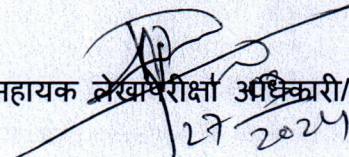 सहायक लेखापरीक्षा अधिकारी/
27 2024